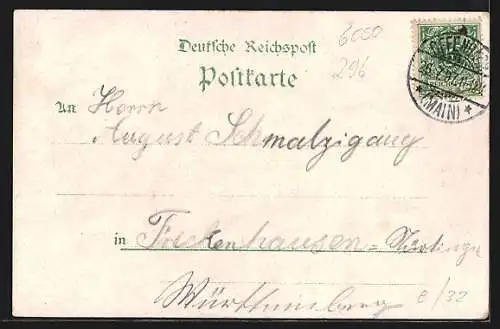 Deutsche Reichspost
Postkarte
6050
296
OFFENBACH
(MAIN)
An Herrn
August Schmalzigang
in Frickenhausen = Nürtingen
Württemberg
8/32